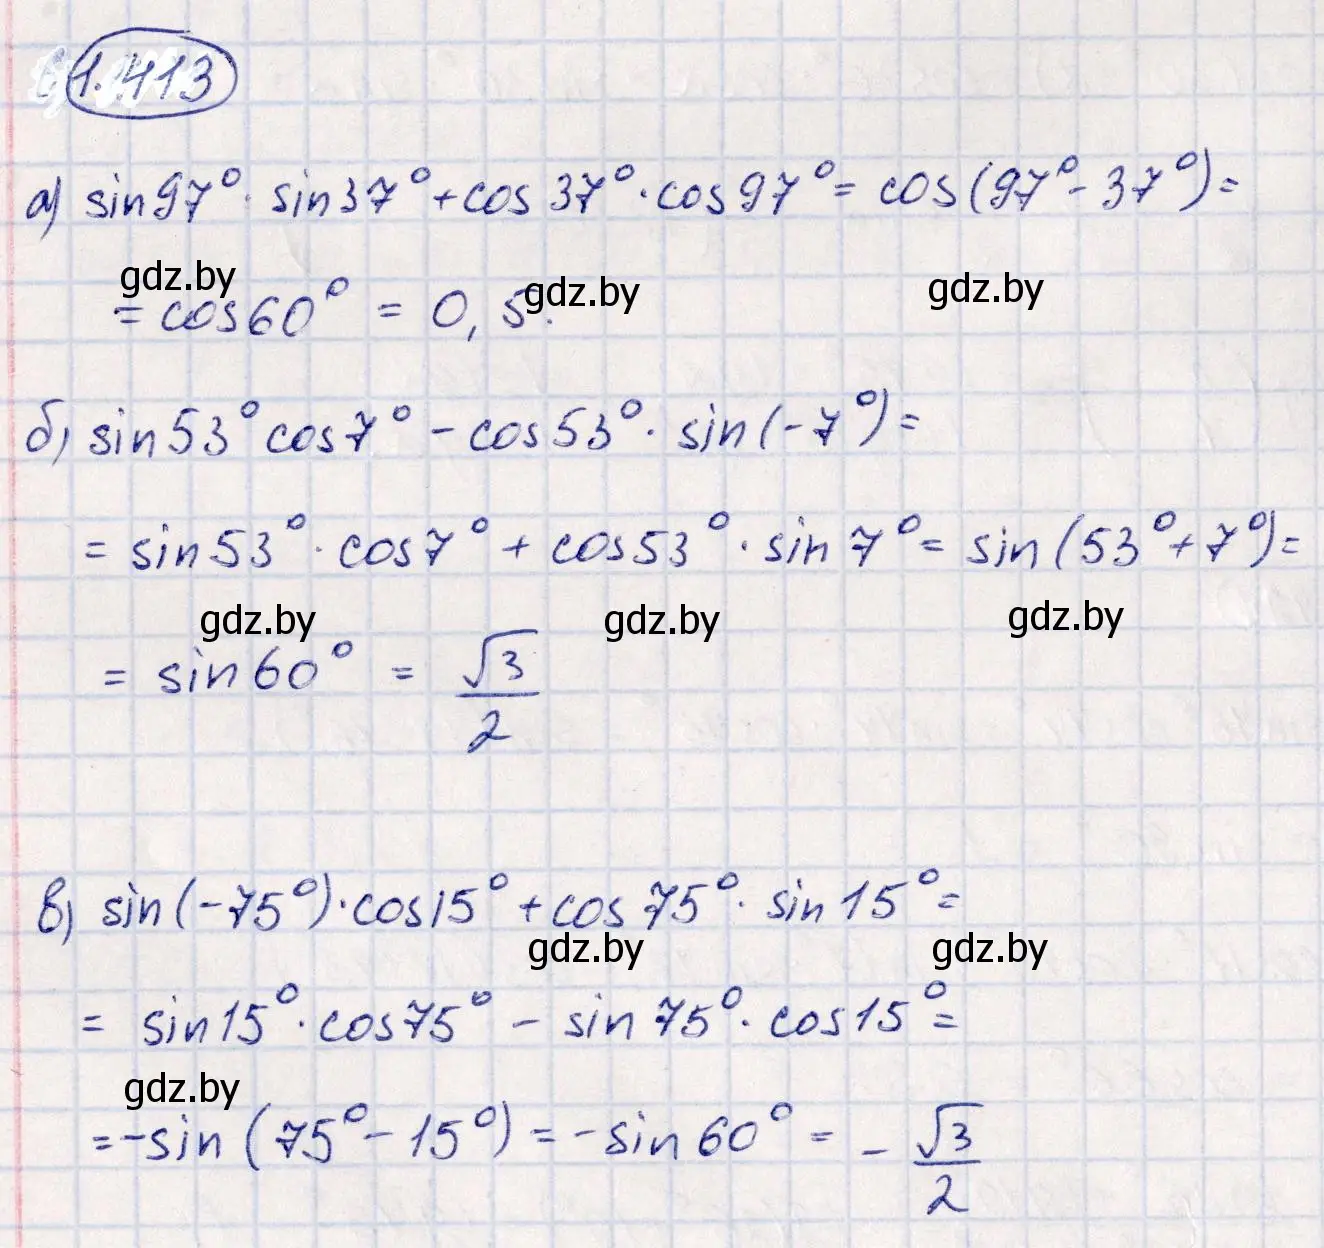 1.413
а) sin97°· sin37°+cos37°·cos97°= cos(97°-37°)=
gdz.by gdz.by gdz.by
= cos60° = 0,5.
б) sin53°cos7° - cos53°· sin(-7°)=
= sin53°· cos7° + cos53°· sin7°= sin(53°+7°)=
gdz.by gdz.by gdz.by
= sin60° = √3/2
в) sin(-75°)·cos15° +cos75°· sin15°=
gdz.by gdz.by
= sin15°·cos75° - sin75°·cos15°=
gdz.by
=-sin(75°-15°)=-sin60°= - √3/2